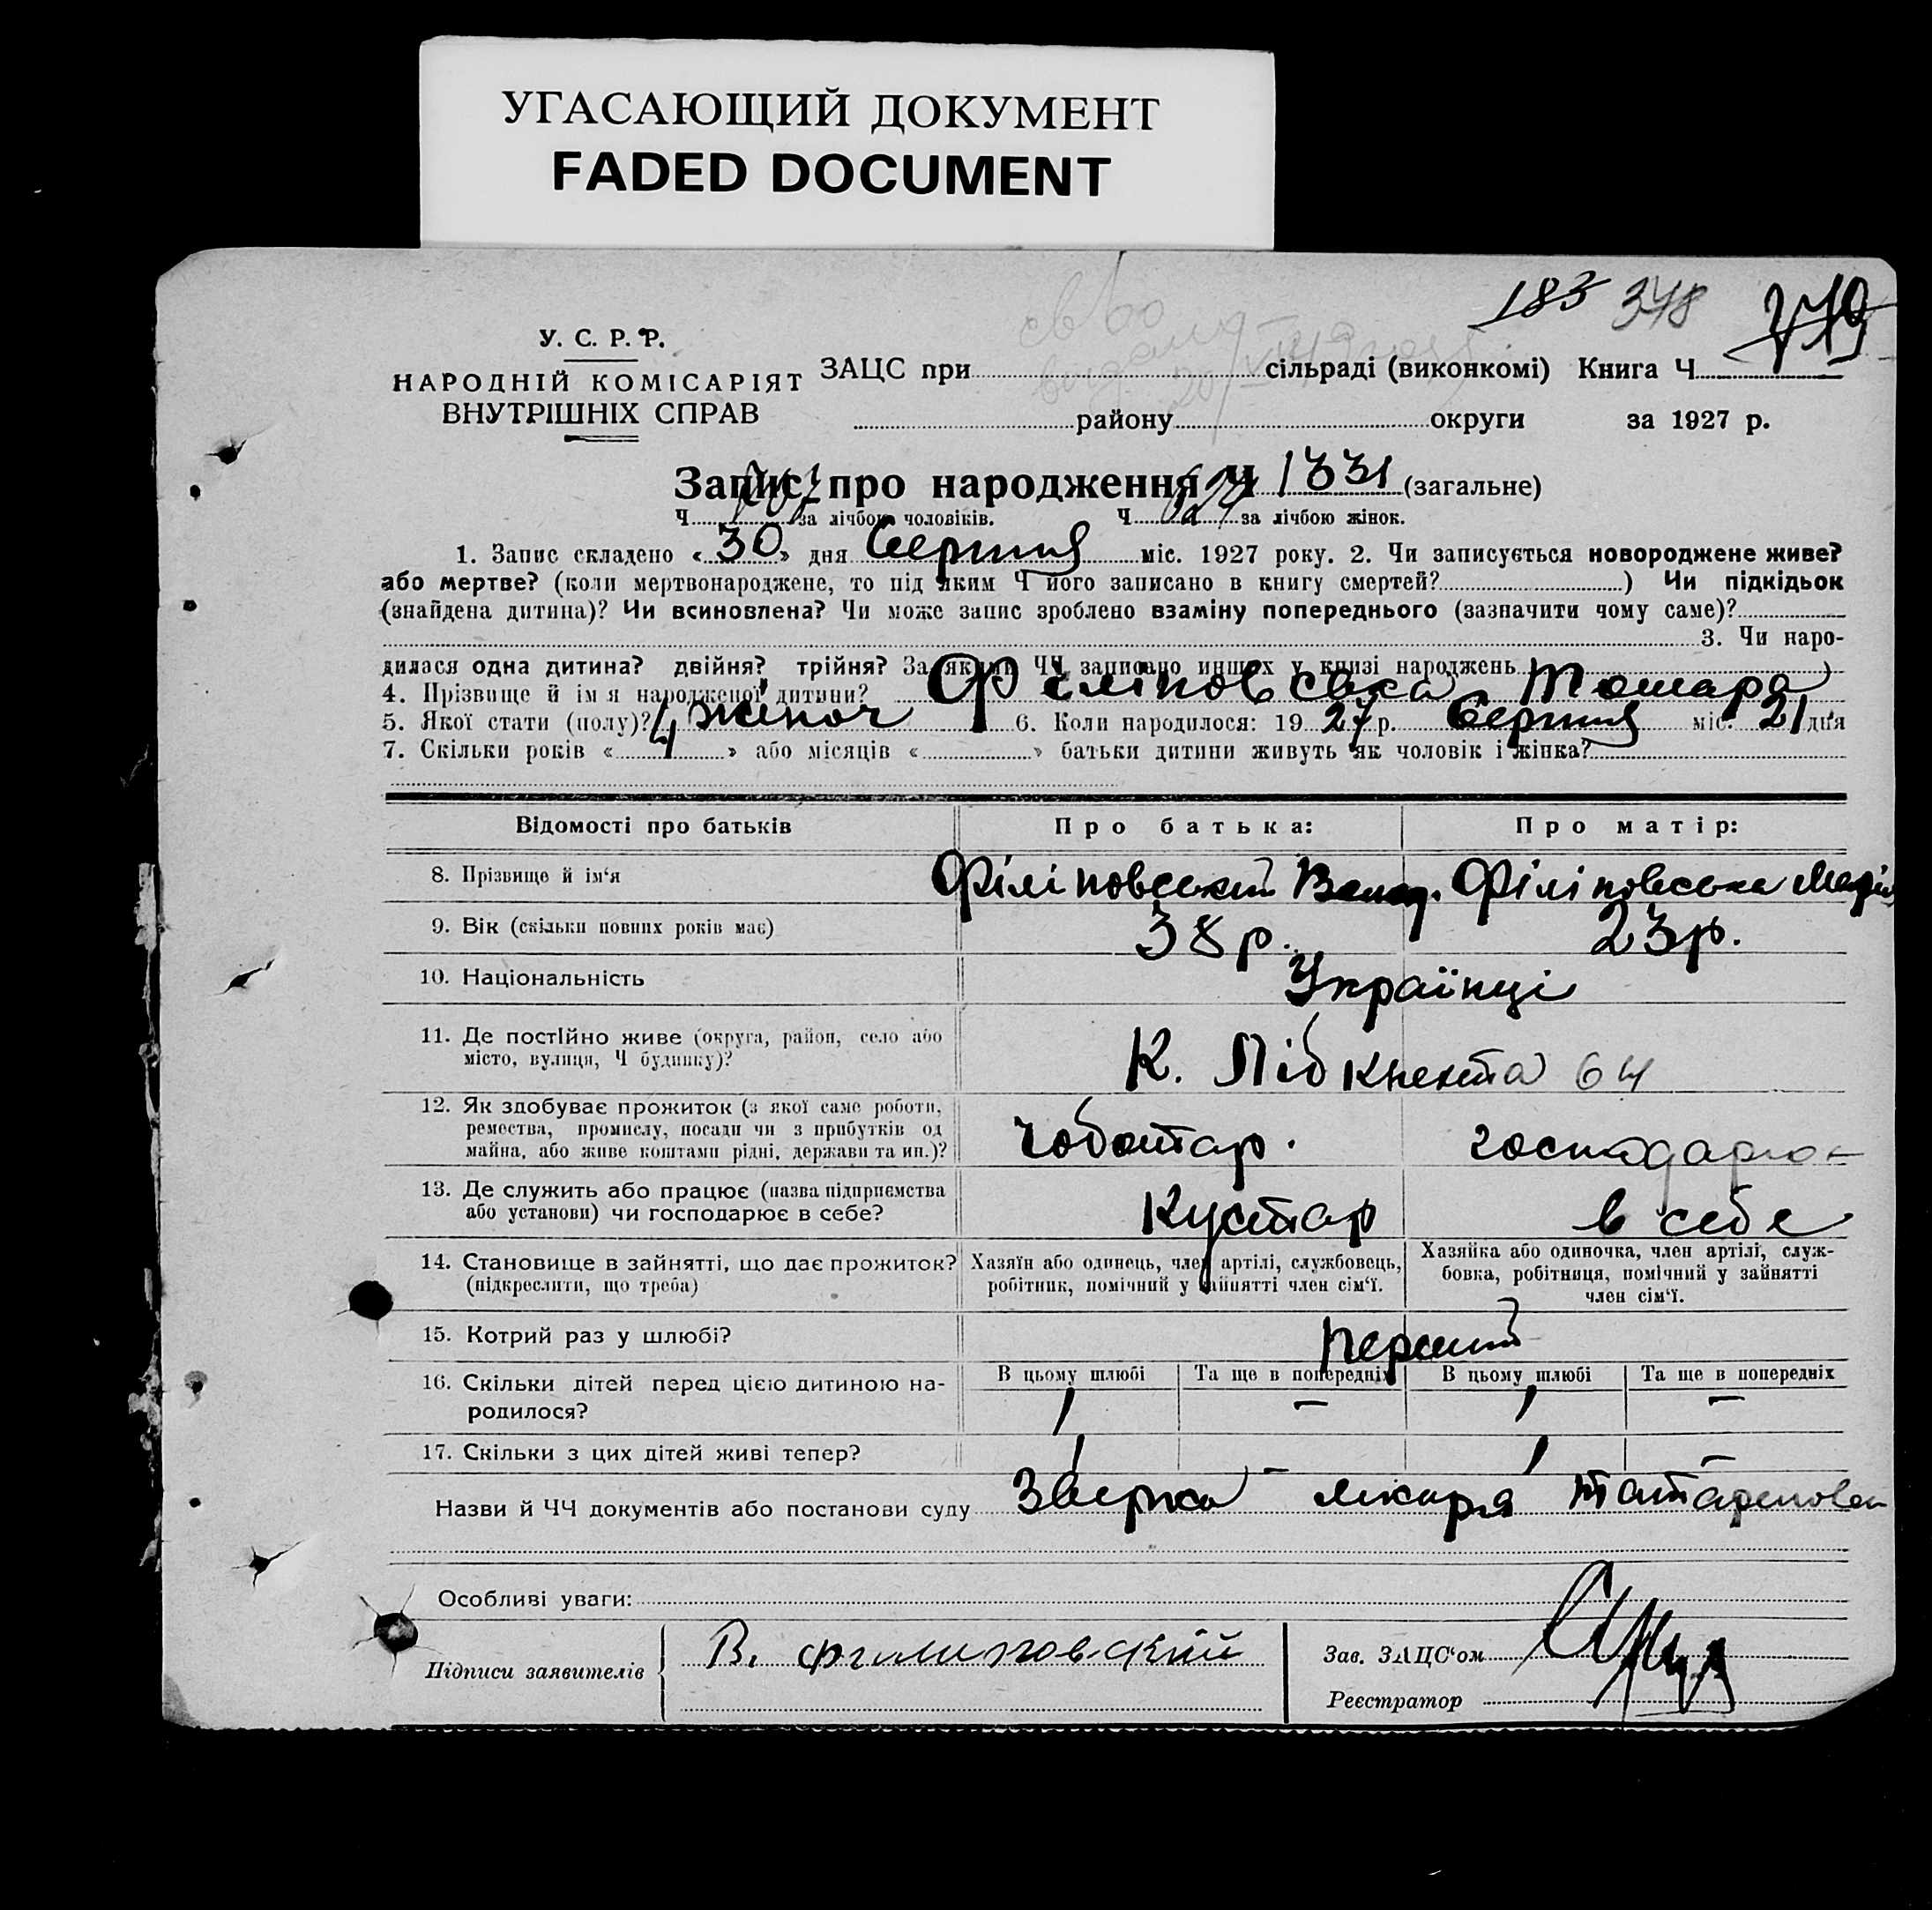 УГАСАЮЩИЙ ДОКУМЕНТ
FADED DOCUMENT
183 348
У. С. Р. Р.
НАРОДНІЙ КОМІСАРІЯТ
ВНУТРІШНІХ СПРАВ
ЗАЦС при сільраді (виконкомі) Книга Ч
району округи за 1927 р.
Запис про народження Ч 1331 (загальне)
Ч за лічбою чоловіків. Ч за лічбою жінок.
1. Запис складено «30» дня Серпня міс. 1927 року. 2. Чи записується новороджене живе?
або мертве? (коли мертвонароджене, то під яким Ч його записано в книгу смертей? ) Чи підкідьок
(знайдена дитина)? Чи всиновлена? Чи може запис зроблено взаміну попереднього (зазначити чому саме)?
3. Чи наро-
дилася одна дитина? двійня? трійня? За якими ЧЧ записано инших у книзі народжень )
4. Прізвище й ім'я народженої дитини? Філіповська Томара
5. Якої стати (полу)? жіноч 6. Коли народилося: 1927 р. Серпня міс. 21 дня
7. Скільки років «4» або місяців « » батьки дитини живуть як чоловік і жінка?
Відомості про батьків Про батька: Про матір:
8. Прізвище й ім'я Філіповський Філіповська Марія
9. Вік (скільки повних років має) 38 р. 23 р.
10. Національність Українці
11. Де постійно живе (округа, район, село або
місто, вулиця, Ч будинку)? К. Лібкнехта 64
12. Як здобуває прожиток (з якої саме роботи,
ремества, промислу, посади чи з прибутків од
майна, або живе коштами рідні, держави та ин.)? Чоботар. господарює
13. Де служить або працює (назва підприємства
або установи) чи господарює в себе? Кустар в себе
14. Становище в зайнятті, що дає прожиток?
(підкреслити, що треба)
Хазяїн або одинець, член артілі, службовець,
робітник, помічний у зайнятті член сім'ї.
Хазяйка або одиночка, член артілі, служ-
бовка, робітниця, помічний у зайнятті
член сім'ї.
15. Котрий раз у шлюбі? перший
В цьому шлюбі Та ще в попередніх В цьому шлюбі Та ще в попередніх
16. Скільки дітей перед цією дитиною на-
родилося? 1 – 1 –
17. Скільки з цих дітей живі тепер? 1 – 1 –
Назви й ЧЧ документів або постанови суду лікаря
Особливі уваги:
Підписи заявителів В. Филиповский
Зав. ЗАЦС'ом
Реєстратор